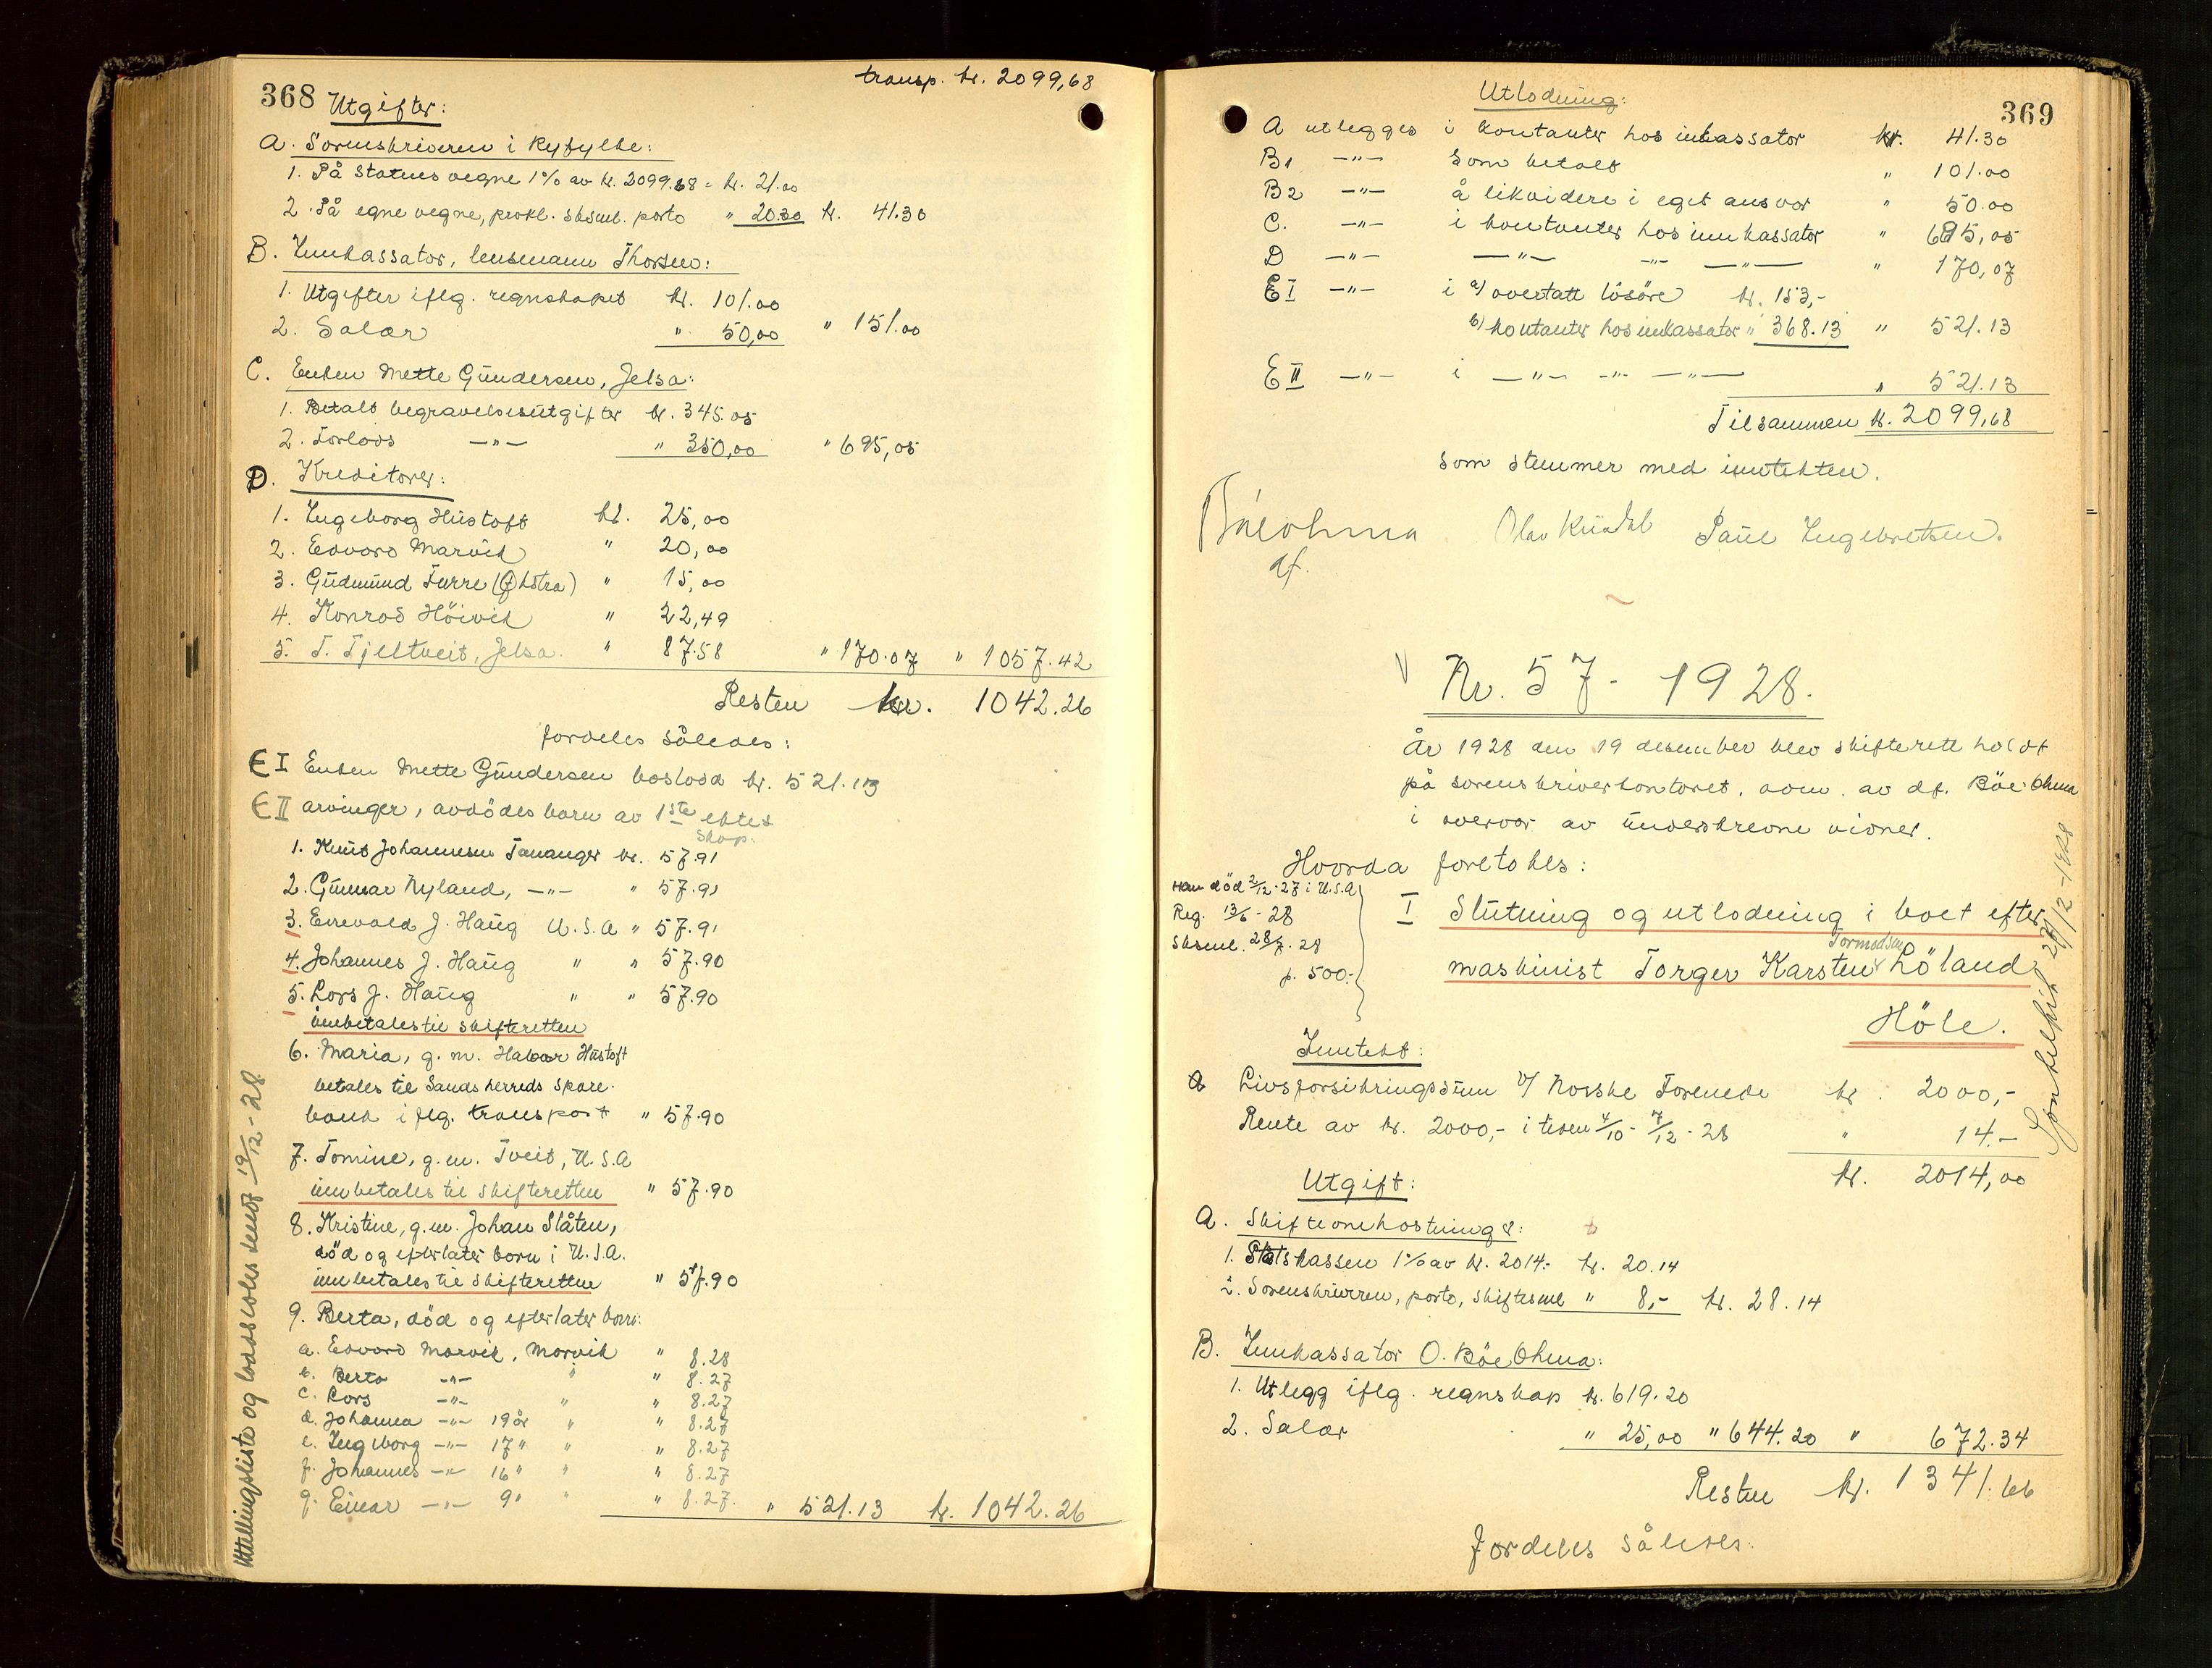 368
transp. kr. 2099,68
Utgifter:
A. Sorenskriveren i Ryfylke:
1. På Statens vegne 1% av kr. 2099.68 = kr. 21.00
2. På egne vegne, prokl. sksml. porto " 20.30 kr. 41.30
B. Innkassator, lensmann Thorsen:
1. Utgifter iflg. regnskapet kr. 101.00
2. Salær " 50,00 " 151.00
C. Enken Mette Gundersen, Jelsa:
1. Betalt begravelsesutgifter kr. 345.05
2. Forlods —"— " 350,00 " 695,05
D. Kreditorer:
1. Ingeborg Hustoft kr. 25,00
2. Edvard Marvik " 20,00
3. Gudmund Furre (Økstra) " 15,00
4. Konrad Höivik " 22,49
5. T. Tjeltveit, Jelsa. " 87.58 " 170.07 " 1057.42
Resten kr. 1042.26
fordeles således:
E I Enken Mette Gundersen boslodd kr. 521.13
E II arvinger, avdödes barn av 1ste ekteskap:
1. Knut Johannesen Tananger kr. 57.91
2. Gunnar Nyland, —"— " 57.91
3. Enevald J. Haug U.S.A " 57.91
4. Johannes J. Haug " " 57.90
5. Lars J. Haug " " 57.90
innbetales til skifteretten
6. Maria, g.m. Håvar Hustoft
betales til Sands herreds Spare-
bank iflg. transport " 57.90
7. Tomine, g.m. Tveit, U.S.A
innbetales til skifteretten " 57.90
8. Kristine, g.m. Johan Slåten,
död og efterlater barn i U.S.A.
innbetales til skifteretten " 57.90
9. Berta, död og efterlater barn:
a. Edvard Marvik, Marvik " 8.28
b. Berta —"— " " 8.27
c. Lars —"— " " 8.27
d. Johanna —"— 19 år " " 8.27
e. Ingeborg —"— 17 " " " 8.27
f. Johannes —"— 16 " " " 8.27
g. Einar —"— 9 " " " 8.27. " 521.13 kr. 1042.26
Utdelingsliste og loddsedler sendt 19/12-28
369
Utlodning:
A utlegges i kontanter hos inkassator kr. 41.30
B1 —"— som betalt " 101.00
B2 —"— å likvidere i eget ansvar " 50.00
C. —"— i kontanter hos innkassator " 695,05
D —"— —"— —"— —"— " 170,07
E I —"— i a/ overtatt lösöre kr. 153,-
b/ kontanter hos innkassator " 368.13 " 521.13
E II —"— i —"— —"— —"— " 521.13
Tilsammen kr. 2099,68
som stemmer med inntekten.
Böe Ohma Olav Kusdal Paul Ingebretsen.
df.
Nr. 57 - 1928.
År 1928 den 19 desember blev skifterett holdt
på sorenskriverkontoret, adm. av df. Böe Ohma
i overvær av underskrevne vidner.
Hvorda foretokes:
Han död 2/12-27 i U.S.A
Reg. 13/6-28
Sksml. 28/7-28
p. 500.-
I Slutning og utlodning i boet efter
maskinist Torger Karsten Tormodsen Löland
Höle.
Inntekt:
a Livsforsikringssum i/ Norske Forenede kr. 2000,-
Rente av kr. 2000,- i tiden 4/10 - 7/12 - 28 " 14.-
kr. 2014,00
Utgift:
A. Skifteomkostninger:
1. Statskassen 1% av kr. 2014.- kr. 20.14
2. Sorenskriveren, porto, skiftesml " 8,- kr. 28.14
B. Innkassator O. Böe Ohma:
1. Utlegg iflg. regnskap kr. 619.20
2. Salær " 25,00 " 644.20 " 672.34
Resten kr. 1341.66
fordeles således: